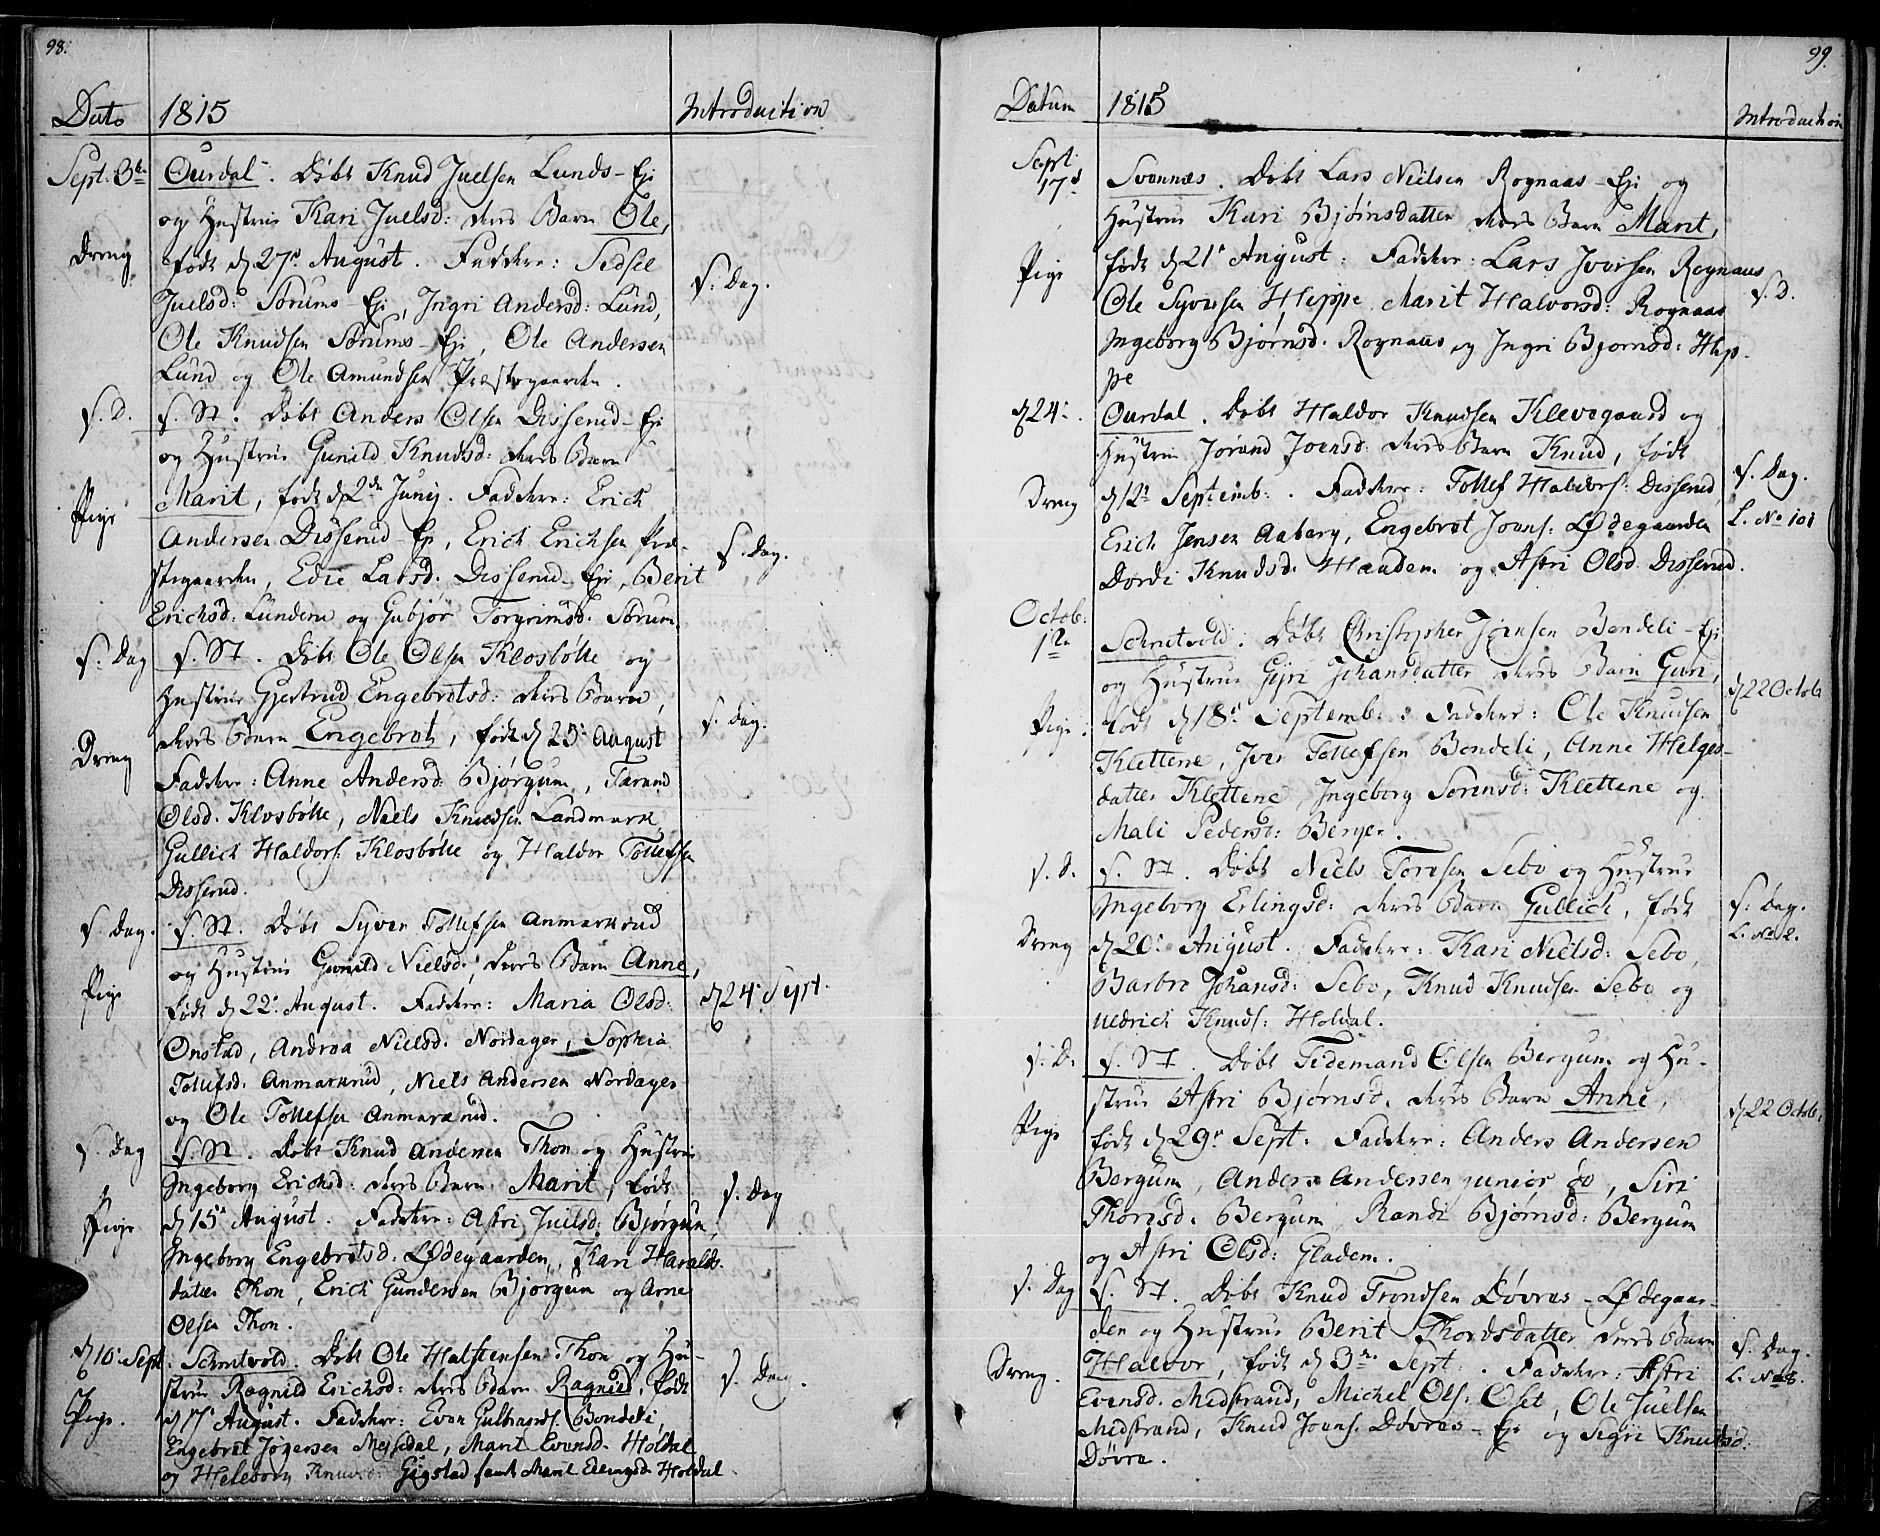 98.
Dato 1815 Introduction
Sept. 3die Ourdal. Døbt Knud Juelsen Lunds-Eje
og Hustrue Kari Juelsd: deres Barn Ole,
Dreng født d 27de August. Faddere: Sidsel
Juelsd: Sørums Eje, Ingri Andersd: Lund, S. Dag.
Ole Knudsen Sørums-Eje, Ole Andersen
Lund og Ole Amundsen Præstegaarden.
S. D. S. St. Døbt Anders Olsen Disserud-Eje
og Hustrue Gunild Knudsd: deres Barn
Pige Marit, født d 2den Junij. Faddere: Erich
Andersen Disserud-Eje, Erich Erichsen Præ-
stegaarden, Edie Larsd: Disserud-Eje, Berit S. Dag.
Erichsd: Lundene og Gubjør Torgrimsd: Sørum.
S. Dag S. St. Døbt Ole Olsen Klosbølle og
Hustrue Gjertrud Engebretsd: deres Barn,
Dreng deres Barn Engebret, født d 25de August S. Dag.
Faddere: Anne Andersd: Bjørgum, Tarand
Olsd: Klosbølle, Niels Knudsen Landmark
Gullich Haldors: Klosbølle og Haldor Tollefsen
Disserud.
S. Dag. S. St. Døbt Syver Tollefsen Anmarkrud
og Hustrue Gunild Nielsd:, deres Barn Anne,
Pige født d 22de August. Faddere: Maria Olsd: d 24de Sept.
Onstad, Androa Nielsd: Nordager, Sophia
Tollefsd: Anmarkrud, Niels Andersen Nordager
og Ole Tollefsen Anmarkrud.
S. Dag S. St. Døbt Knud Andersen Thon og Hustrue
Ingeborg Erichsd: deres Barn Marit, født S. Dag
Pige d 15de August. Faddere: Astri Juelsd: Bjørgum,
Ingeborg Engebretsd: Lødegaarden, Kari Haralds-
datter Thon, Erich Gundersen Bjørgum og Arne
Olsen Thon.
d 10de Sept. Schrutvold. Døbt Ole Halstensen Thon og Hu-
strue Ragnild Erichsd: deres Barn Ragnild, født S. Dag.
Pige. d 17de August. Faddere: Even Gulbrands: Bondeli,
Engebret Jørgersen Mejsdal, Marit Evensd: Holdal
og Heleborg Knudsd: Gigstad samt Marit Erlingsd: Holdal.
99.
Datum 1815 Introduction
Sept: 17de Svennæs. Døbt Lars Nielsen Rognaas-Eje og
Hustrue Kari Bjørnsdatter deres Barn Marit,
Pige født d 21de August: Faddere: Lars Iversen Rognaas S. D.
Ole Syversen Heppe, Marit Halvorsd: Rognaas
Ingeborg Bjørnsd: Rognaas og Ingri Bjørnsd: Hep-
pe
d 24de. Ourdal. Døbt Haldor Knudsen Klevegaard og
Hustrue Jørand Joensd: deres Barn Knud, født
Dreng d 12de Septemb:. Faddere: Tollef Haldors: Disserud S. Dag.
Erich Jensen Aaberg, Engebret Joens: Lødegaarden L. No 101
Dordi Knudsd: Haadem og Astri Olsd: Disserud.
Octob: 1ste Schrutvold. Døbt Christopher Jensen Bondeli-Eje
og Hustrue Gyri Johansdatter deres Barn Guri, d 22 Octob:
Pige født d 18de Septemb:. Faddere: Ole Knudsen
Klettene, Iver Tollefsen Bondeli, Anne Helges-
datter Klettene, Ingeborg Sørensd: Klettene og
Mali Pedersd: Berger.
S. D. S. St. Døbt Niels Toresen Sebo og Hustrue
Ingeborg Erlingsd: deres Barn Gullich, født S. Dag.
Dreng d 20de August. Faddere: Kari Nielsd: Sebo, L. No 2.
Barbro Johansd: Sebo, Knud Knudsen Sebo og
Uldrich Knuds: Holdal.
S. D. S. St. Døbt Tidemand Olsen Bergum og Hu-
strue Astri Bjørnsd: deres Barn Anne,
Pige født d 29de Sept: Faddere: Anders Andersen d 22 Octob:
Bergum, Anders Andersen junior do, Siri
Thoresd: Bergum Randi Bjørnsd: Bergum
og Astri Olsd: Gladem.
S. Dag S. St. Døbt Knud Trondsen Døvres-Lødegaar-
den og Hustrue Berit Thordsdatter deres Barn
Dreng. Halvor, født d 3die Sept:. Faddere: Astri S. Dag.
Evensd: Medstrand, Michel Ols: Oset, Ole Juelsen L. No 8.
Medstrand, Knud Joens: Døvres-Eje og Sigri Knudsd:
Døvre.